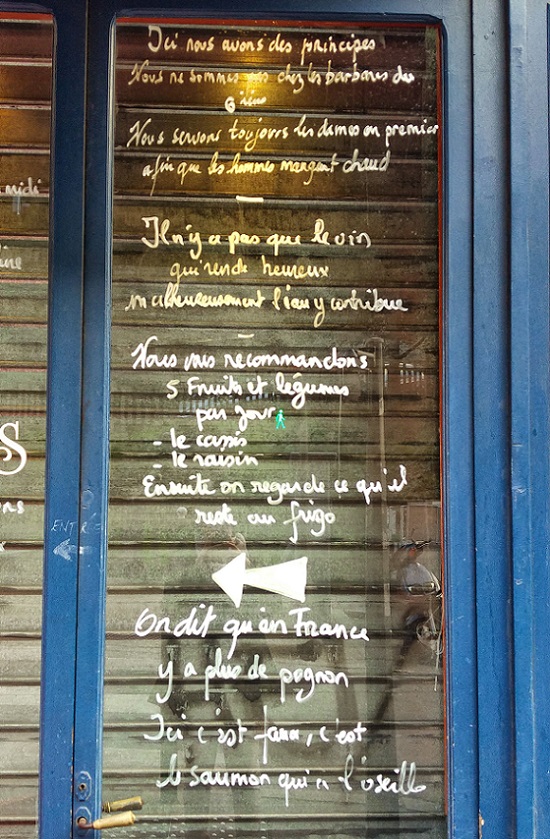 Ici nous avons des principes
Nous ne sommes pas chez les barbares du
6 ième
Nous servons toujours les dames en premier
afin que les hommes mangent chaud
Il n'y a pas que le vin
qui rende heureux
malheureusement l'eau y contribue
Nous vous recommandons
5 Fruits et légumes
par jour
- le cassis
- le raisin
Ensuite on regarde ce qu'il
reste au frigo
On dit qu'en France
y a plus de pognon
Ici c'est faux, c'est
le saumon qui a l'oseille
midi
S
ENTRÉE